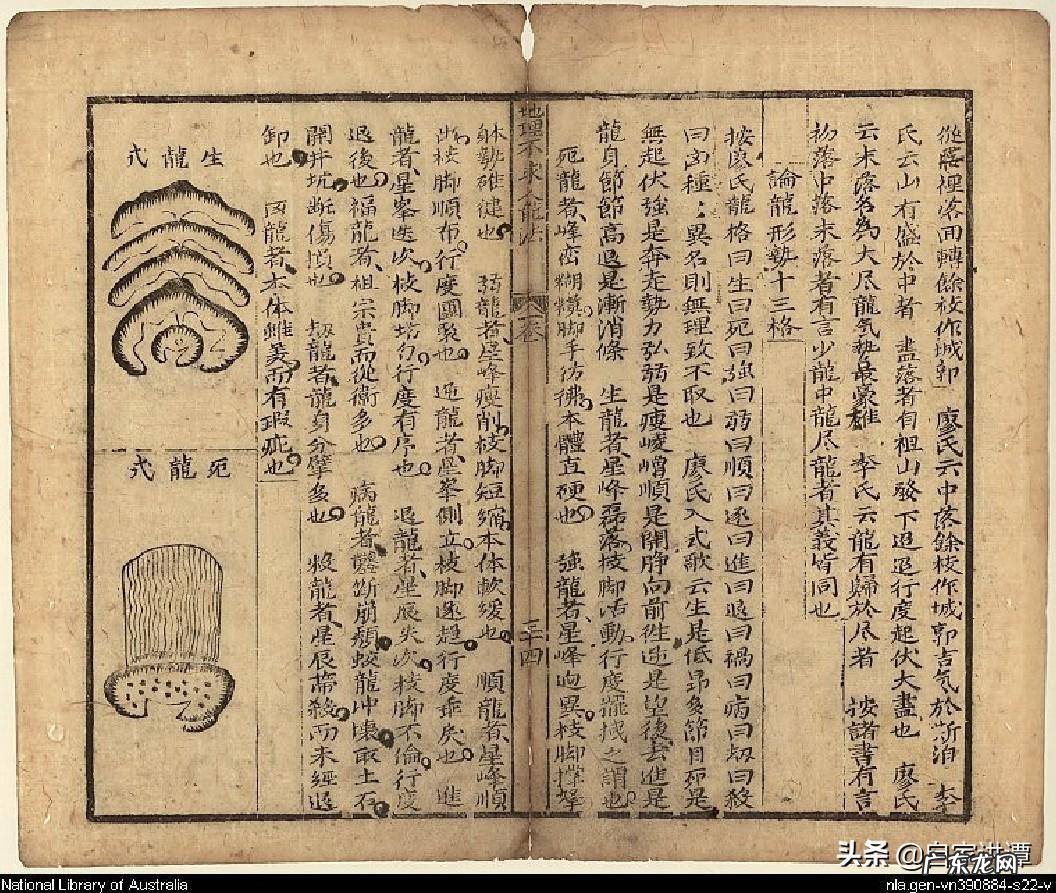 從裹裡落回轉餘枝作城郭　廖氏云中落餘枝作城郭吉氣於斯泊　李
氏云山有盛於中者　盡落者自祖山發下迢迢行度起伏大盡也　廖氏
云末落名為大尽龍氣勢最豪雄　李氏云龍有歸於尽者　按諸書有言
初落中落末落者有言少龍中龍尽龍者其義皆同也
論龍形勢十三格
按廖氏龍格曰生曰死曰強曰弱曰順曰逐曰進曰退曰禍曰病曰刼曰殺
曰函種：異名則無理致不取也　廖氏入式歌云生是低昂多節目死是
無起伏強是奔走勢力弘弱是瘦崚嶒順是開睜向前徃逆是望後去進是
龍身節節高退是漸消條　生龍者星峰磊落枝脚活動行度擺摵之謂也
死龍者峰巒糊糢脚手彷彿本體直硬也　強龍者星峰逈異枝脚撑拏
躰勢雄健也　弱龍者星峰瘦削枝脚短縮本体軟緩也　順龍者星峰順
出枝脚順布行度團聚也　逆龍者星峯側立枝脚逃趨行度乖戾也　進
龍者星峯迭次枝脚均勻行度有序也　退龍者星辰失次枝脚不倫行度
退後也　福龍者祖宗貴而從衛多也　病龍者斷崩頽蛟龍冲壞取土石
開井坑斷傷損也　刼龍者龍身分擘多也　殺龍者星辰帶殺而未經退
卸也　囟龍者本体雖美而有瑕疵也
生龍式
死龍式
地理不求人龍法
卷
三四
National Library of Australia
nla.gen-vn390884-s22-v
头条
广东龙网